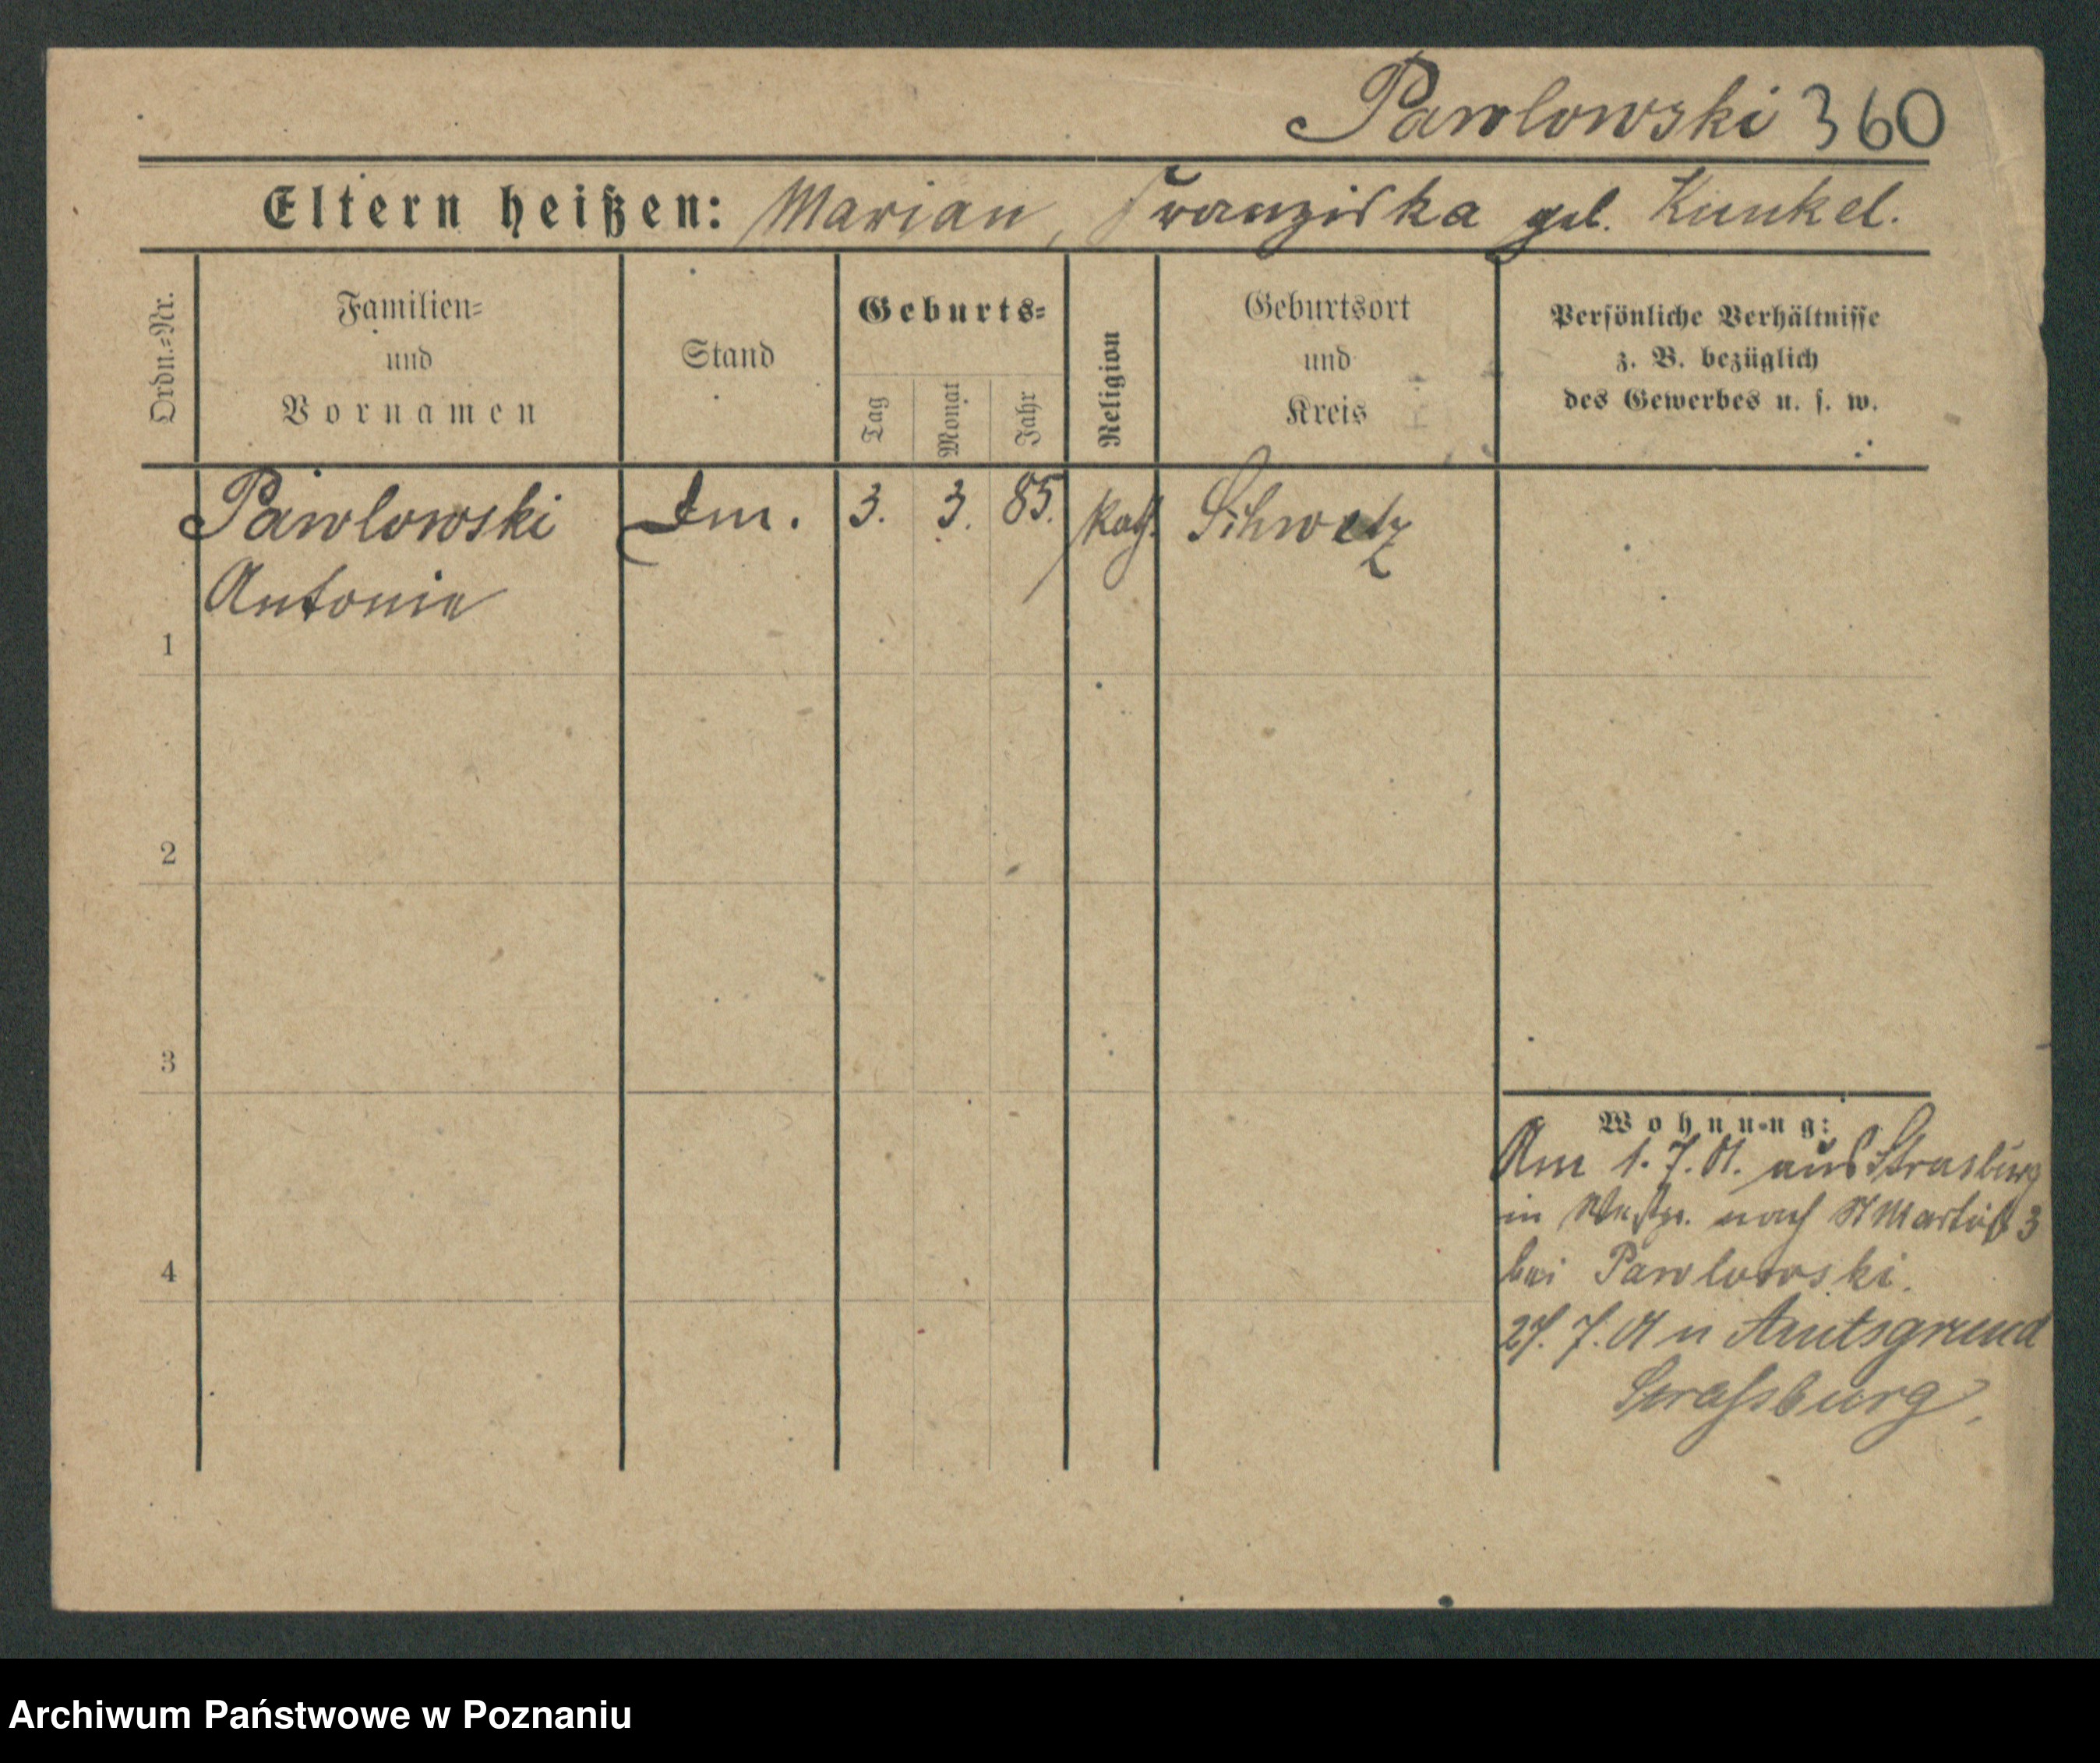 Pawlowski 360
Eltern heißen: Marian, Franziska geb. Kunkel.
Ordn.-Nr.
Familien-
und
Vornamen
Stand
Geburts-
Tag
Monat
Jahr
Religion
Geburtsort
und
Kreis
Persönliche Verhältnisse
z. B. bezüglich
des Gewerbes u. s. w.
Pawlowski
Antonie
3. 3. 85. kath. Schwetz
1
2
3
4
Wohnung:
Am 1. 7. 01. aus Strasburg
in Westpr. nach St Martin 3
bei Pawlowski.
27. 7. 01 n Amtsgrund
Strassburg.
Archiwum Państwowe w Poznaniu